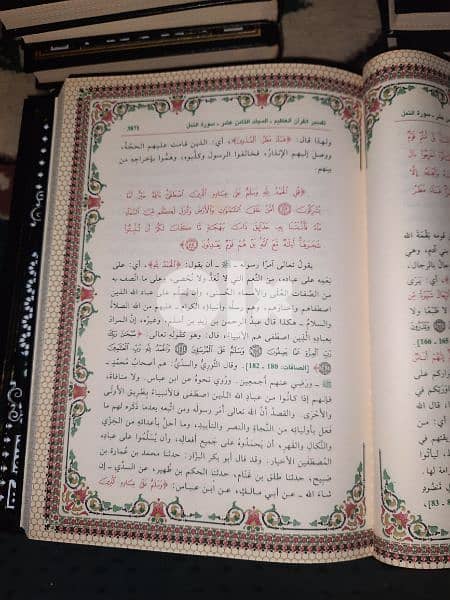 تفسير القرآن العظيم - المجلد الثامن عشر - سورة النمل
3871
ولهذا قال: ﴿فَسَاءَ مَطَرُ الْمُنذَرِينَ﴾، أي: الذين قامت عليهم الحجة،
ووصل إليهم الإنذار، فخالفوا الرسول وكذبوه، وهموا بإخراجهم من
بينهم.
﴿قُلِ الْحَمْدُ لِلَّهِ وَسَلَامٌ عَلَىٰ عِبَادِهِ الَّذِينَ اصْطَفَىٰ آللَّهُ خَيْرٌ أَمَّا
يُشْرِكُونَ أَمَّنْ خَلَقَ السَّمَاوَاتِ وَالْأَرْضَ وَأَنزَلَ لَكُم مِّنَ السَّمَاءِ
مَاءً فَأَنبَتْنَا بِهِ حَدَائِقَ ذَاتَ بَهْجَةٍ مَّا كَانَ لَكُمْ أَن تُنبِتُوا
شَجَرَهَا أَإِلَٰهٌ مَّعَ اللَّهِ بَلْ هُمْ قَوْمٌ يَعْدِلُونَ﴾
يقول تعالى آمرًا رسوله - ﷺ - أن يقول: ﴿الْحَمْدُ لِلَّهِ﴾، أي: على
نعمه على عباده، من النعم التي لا تُعدُّ ولا تُحصى، وعلى ما اتصف به
من الصفات العُلى والأسماء الحسنى، وأن يُسلّم على عباد الله الذين
اصطفاهم واختارهم، وهم رسله وأنبياؤه الكرام، عليهم من الله الصلاة
والسلام - هكذا قال عبد الرحمن بن زيد بن أسلم، وغيره: إن المراد
بعباده الذين اصطفى هم الأنبياء، قال: وهو كقوله تعالى: ﴿سُبْحَانَ رَبِّكَ
رَبِّ الْعِزَّةِ عَمَّا يَصِفُونَ وَسَلَامٌ عَلَى الْمُرْسَلِينَ وَالْحَمْدُ لِلَّهِ رَبِّ الْعَالَمِينَ﴾
[الصافات: 180 ـ 182]. وقال الثوري والسدي: هم أصحاب محمد -
ﷺ - ورضي عنهم أجمعين. وروي نحوه عن ابن عباس. ولا منافاة،
فإنهم إذا كانوا من عباد الله الذين اصطفى فالأنبياء بطريق الأولى
والأحرى. والقصد أن الله تعالى أمر رسوله ومن اتبعه بعدما ذكر لهم ما
فعل بأوليائه من النجاة والنصر والتأييد، وما أحل بأعدائه من الخزي
والنكال والقهر، أن يحمدوه على جميع أفعاله، وأن يُسلّموا على عباده
المصطفين الأخيار. وقد قال أبو بكر البزار: حدثنا محمد بن عمارة بن
صبيح، حدثنا طلق بن غنام، حدثنا الحكم بن ظهير، عن السدي - إن
شاء الله - عن أبي مالك، عن ابن عباس: ﴿وَسَلَامٌ عَلَىٰ عِبَادِهِ الَّذِينَ